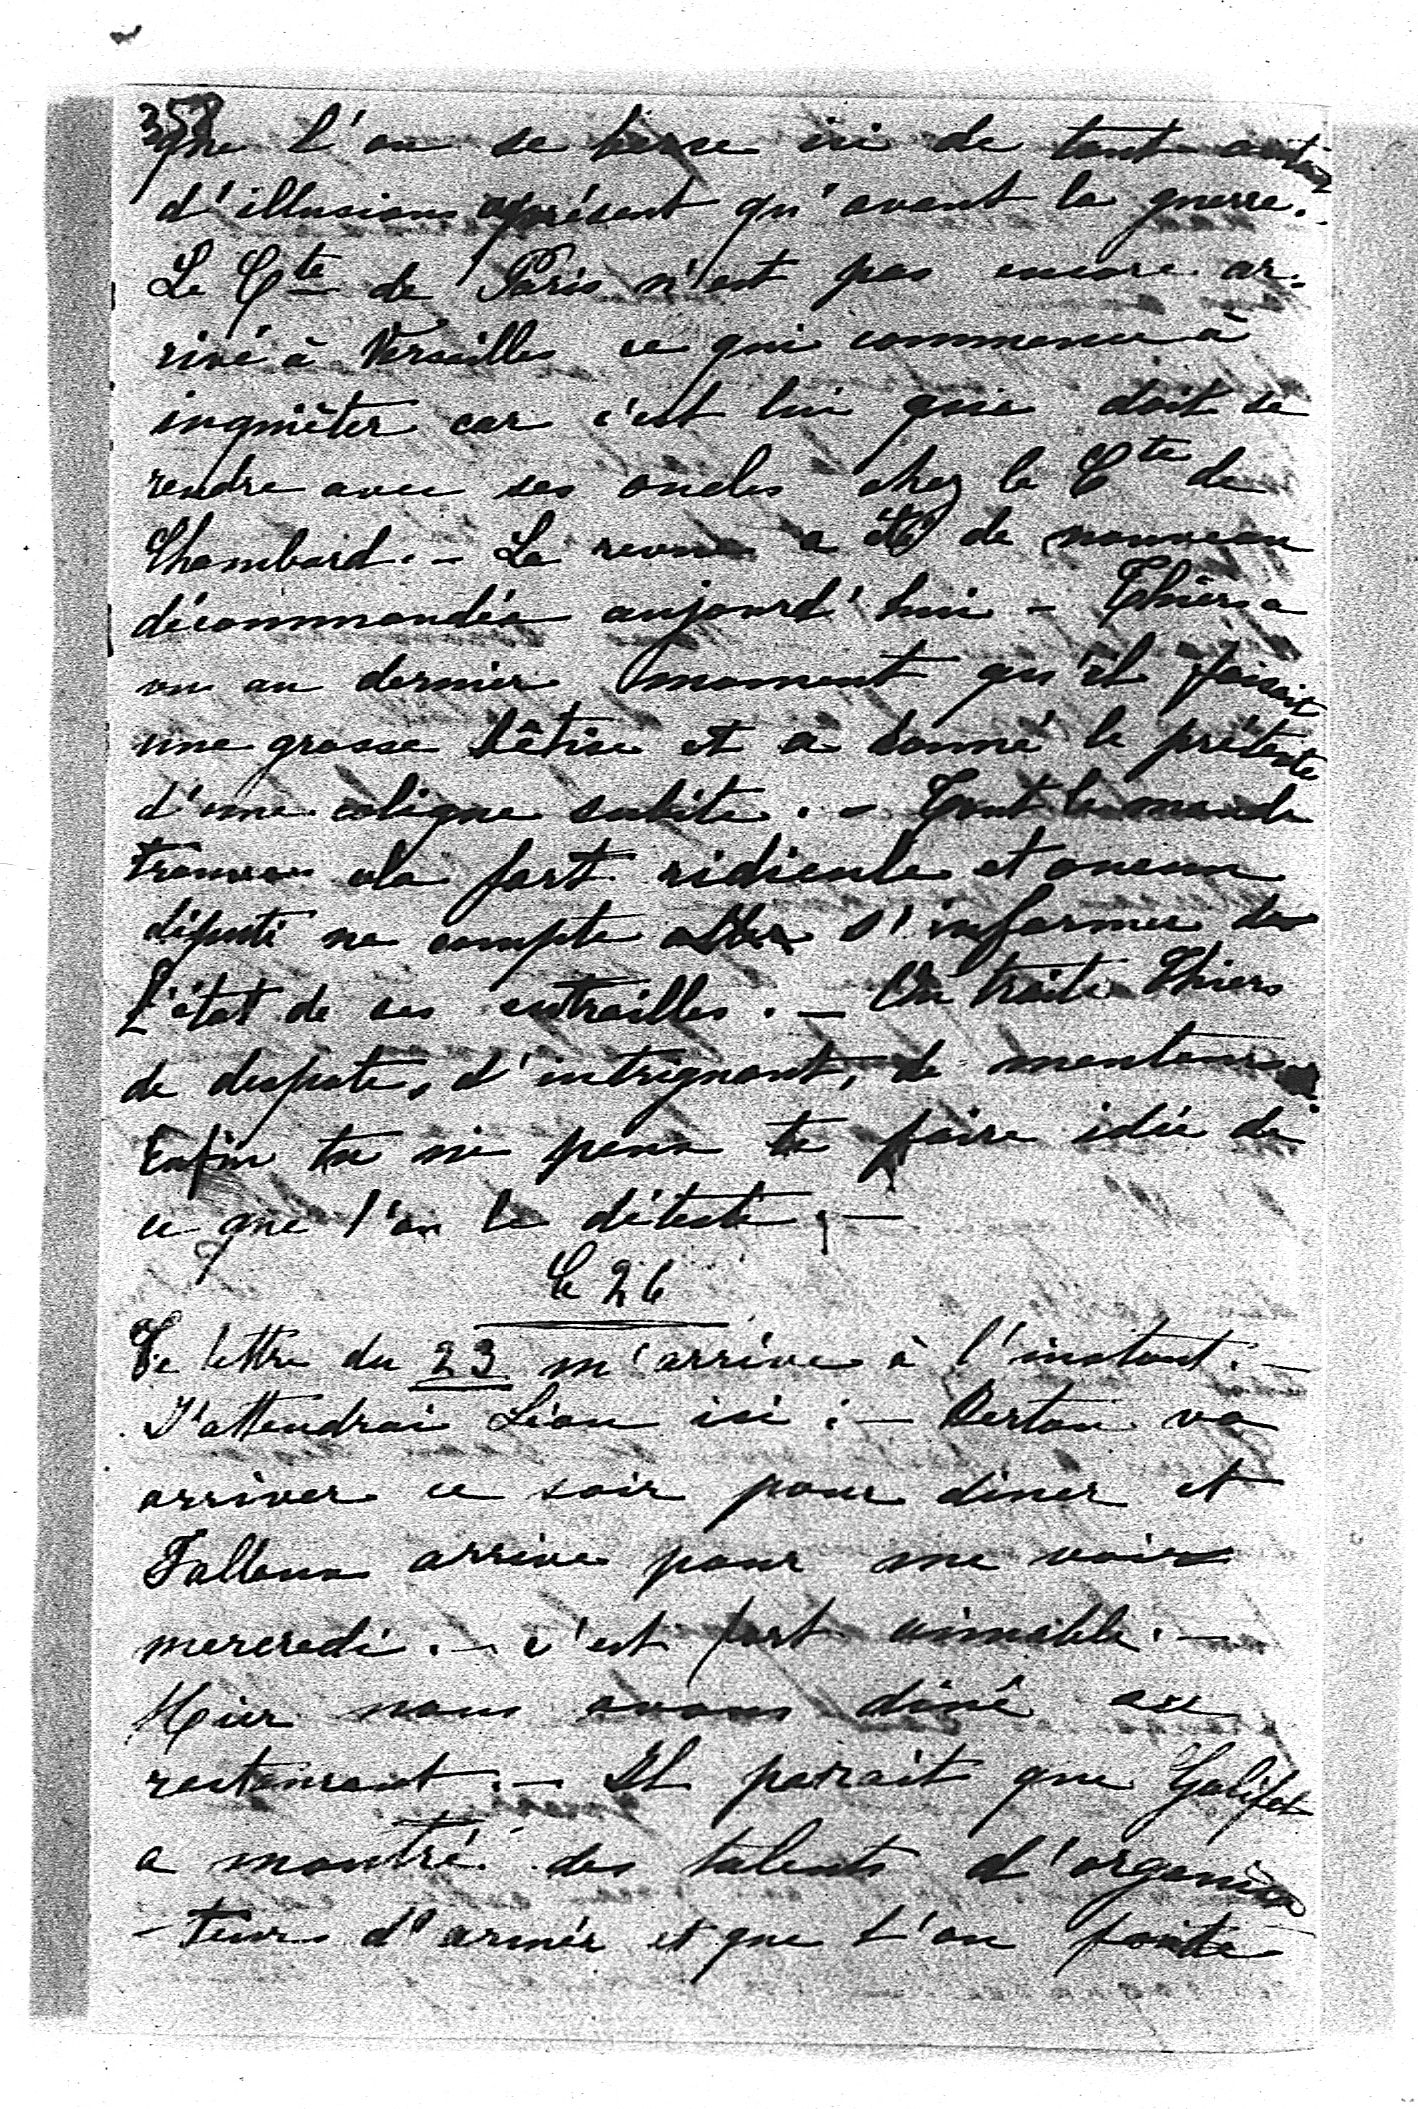 358
que l'on se berce ici de tout autant
d'illusions aprésent qu'avant la guerre.
Le Cte de Paris n'est pas encore ar-
rivé à Versailles ce qui commence à
inquiéter car c'est lui qui doit se
rendre avec ses oncles chez le Cte de
Chambord. - La revue a été de nouveau
décommandée aujourd'hui - Thiers a
vu au dernier moment qu'il faisait
une grosse bêtise et a donné le prétexte
d'une colique subite. - Tout le monde
trouve cela fort ridicule et aucun
député ne compte aller s'informer de
l'état de ses entrailles. - On traite Thiers
de despote, d'intrigant, de menteur.
Enfin tu ne peux te faire idée de
ce que l'on le déteste. -
Le 26
Ta lettre du 23 m'arrive à l'instant. -
J'attendrai Léon ici : - Bertou va
arriver ce soir pour diner et
Falloux arrive pour me voir
mercredi. - c'est fort aimable. -
Hier nous avons diné au
restaurant. - Il parait que Galifet
a montré des talents d'organisa
-teur d'armée et que l'on